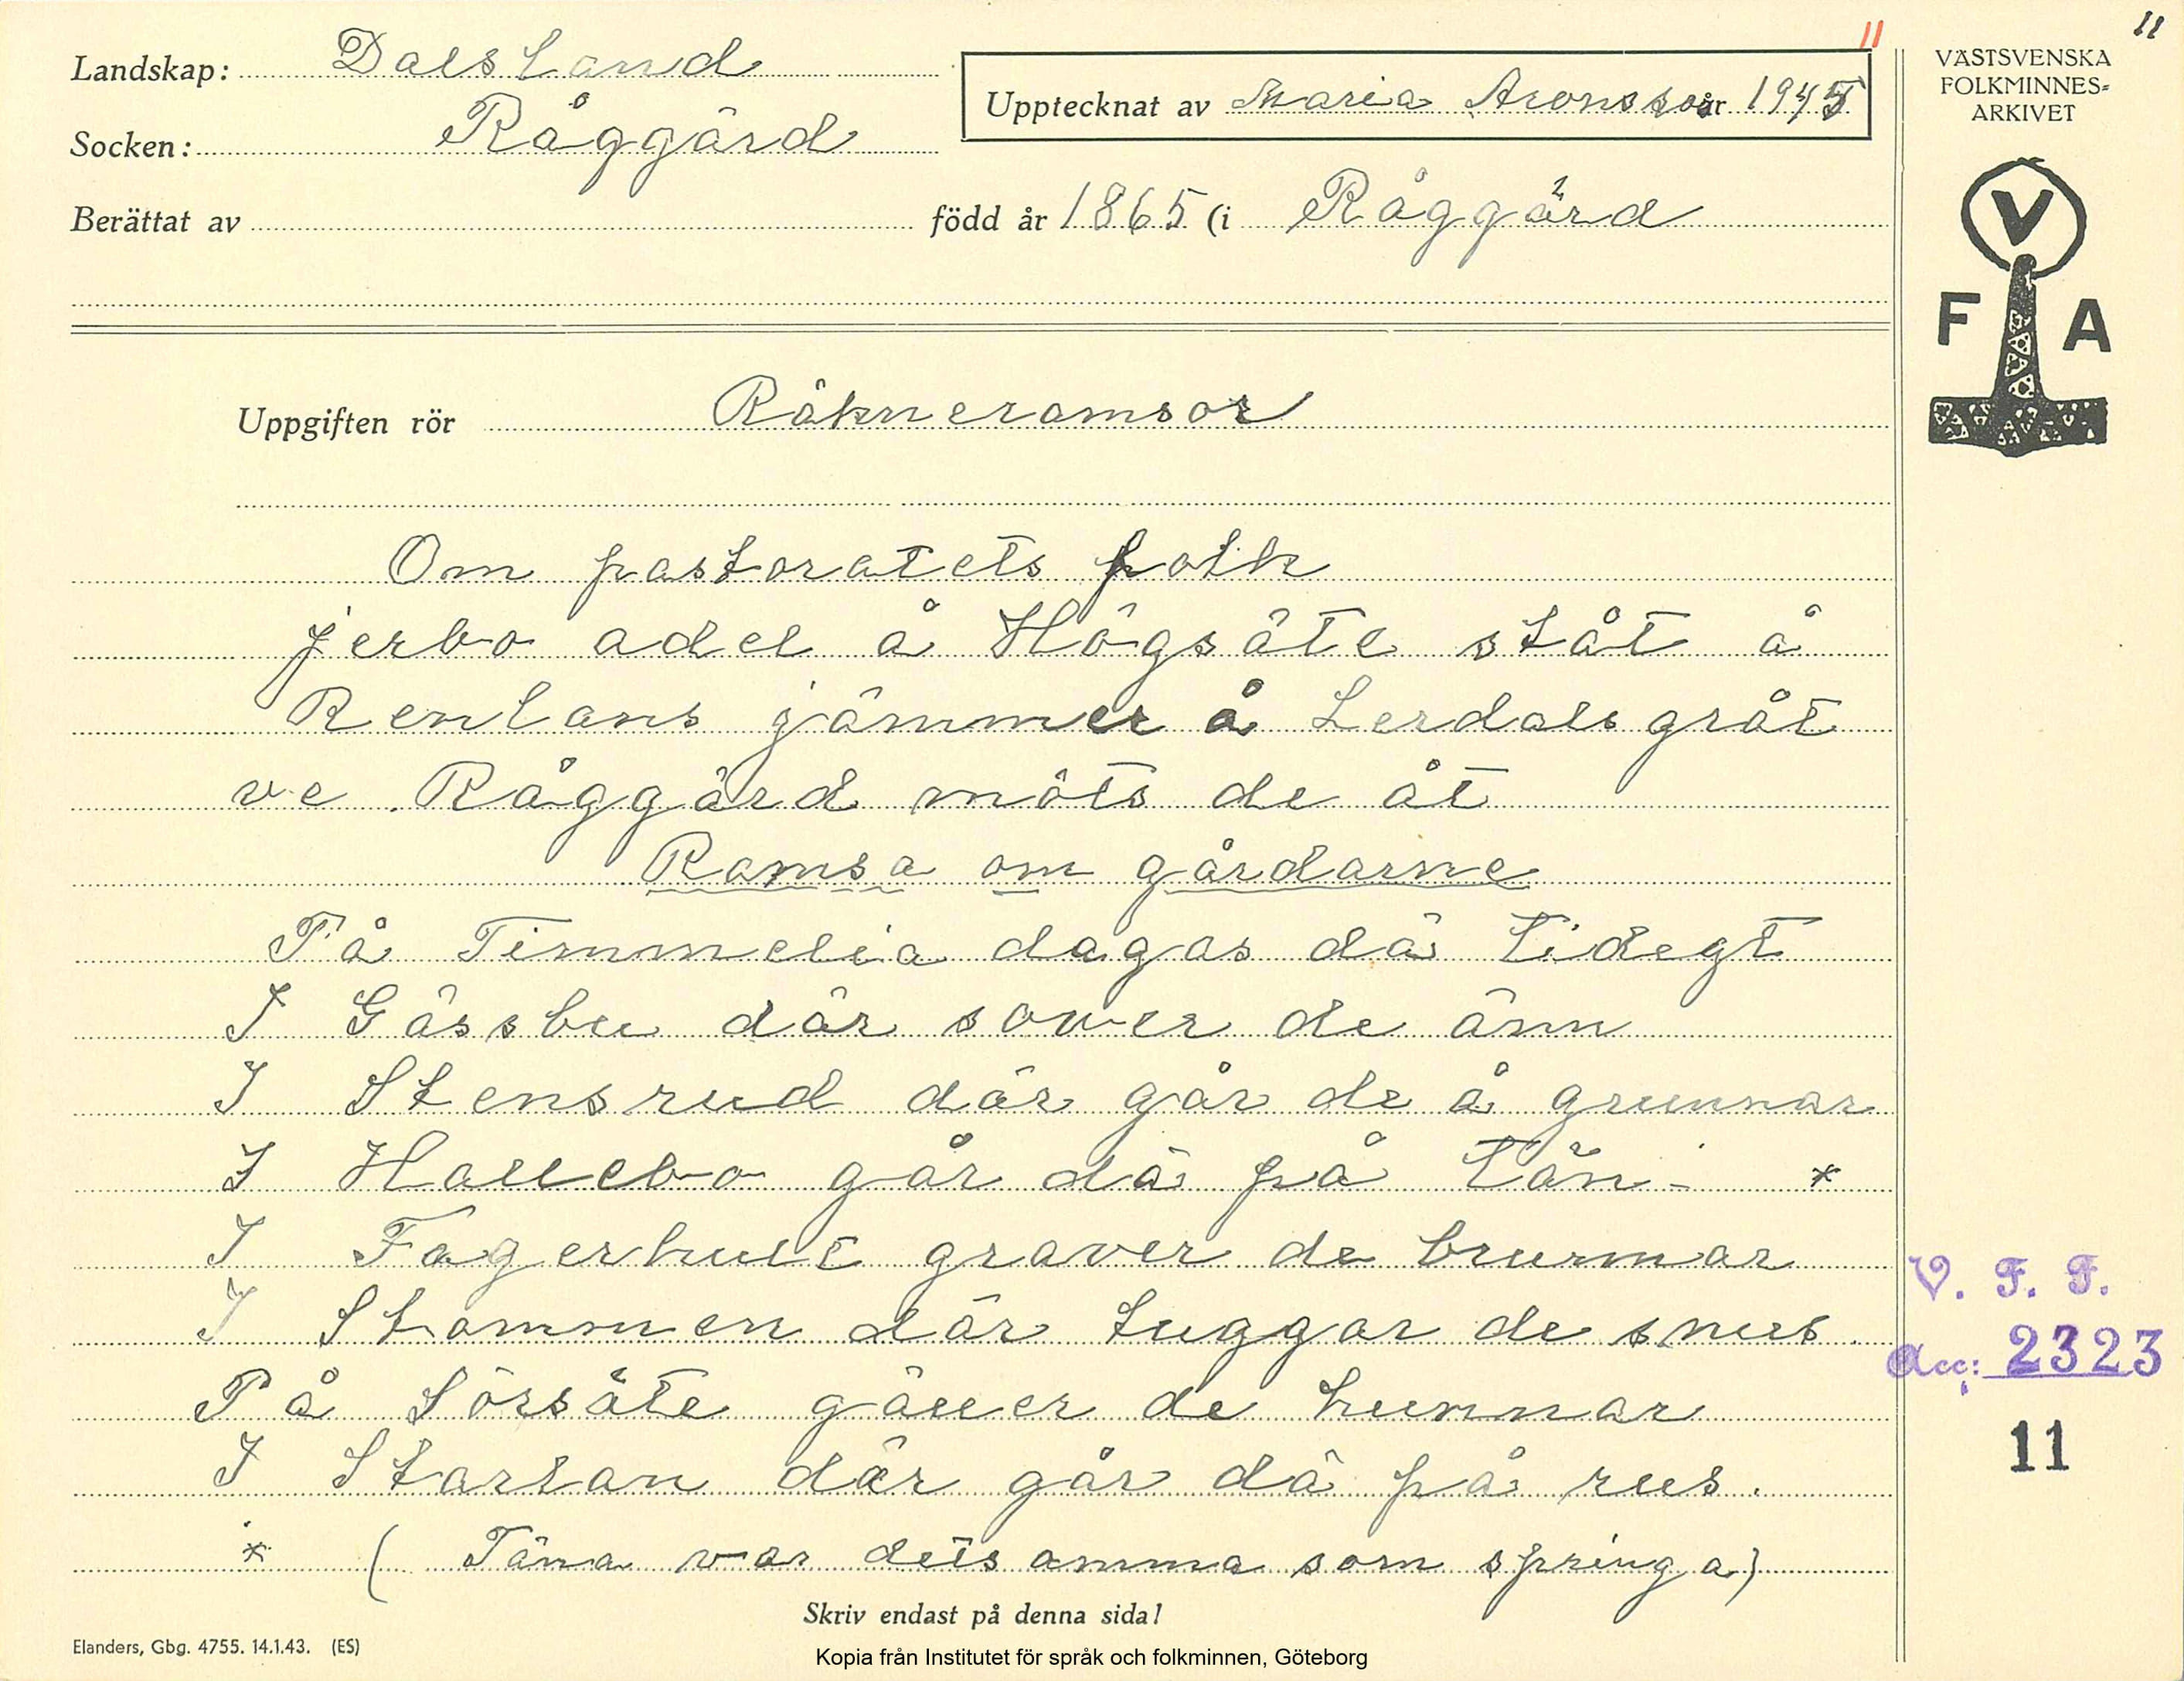 11
11
Landskap: Dalsland
Socken: Råggärd
Upptecknat av Maria Aronsson år 1945
Berättat av född år 1865 (i Råggärd
VÄSTSVENSKA
FOLKMINNES=
ARKIVET
V
F A
Uppgiften rör Räkneramsor
Om pastoratets folk
Jerbo adel å Högsäte ståt å
Renlans jämmer å Lerdals gråt
ve Råggärd möts de åt
Ramsa om gårdarne
På Timmelia dagas dä tidegt
I Gässbu där sower de änn
I Stensrud där går de å grunnar
I Hallebo går dä på tän- *
I Fagerhult graver de brunnar
I Stommen där tuggar de snus.
På Sörsäte gäller de hunnar
I Starlan där går dä på rus.
* ( Täna var detsamma som springa)
V. F. F.
Acc: 2323
11
Skriv endast på denna sida!
Elanders, Gbg. 4755. 14.1.43. (ES)
Kopia från Institutet för språk och folkminnen, Göteborg